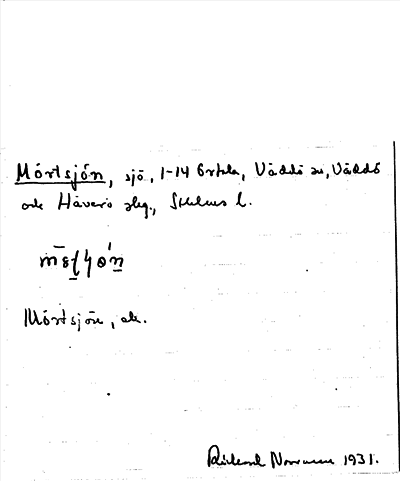 Mörtsjön, sjö, 1-14 Ortala, Väddö sn, Väddö
och Häverö skg., Sthlms l.
Mörtsjön, ak.
Rickard Norrman 1931.